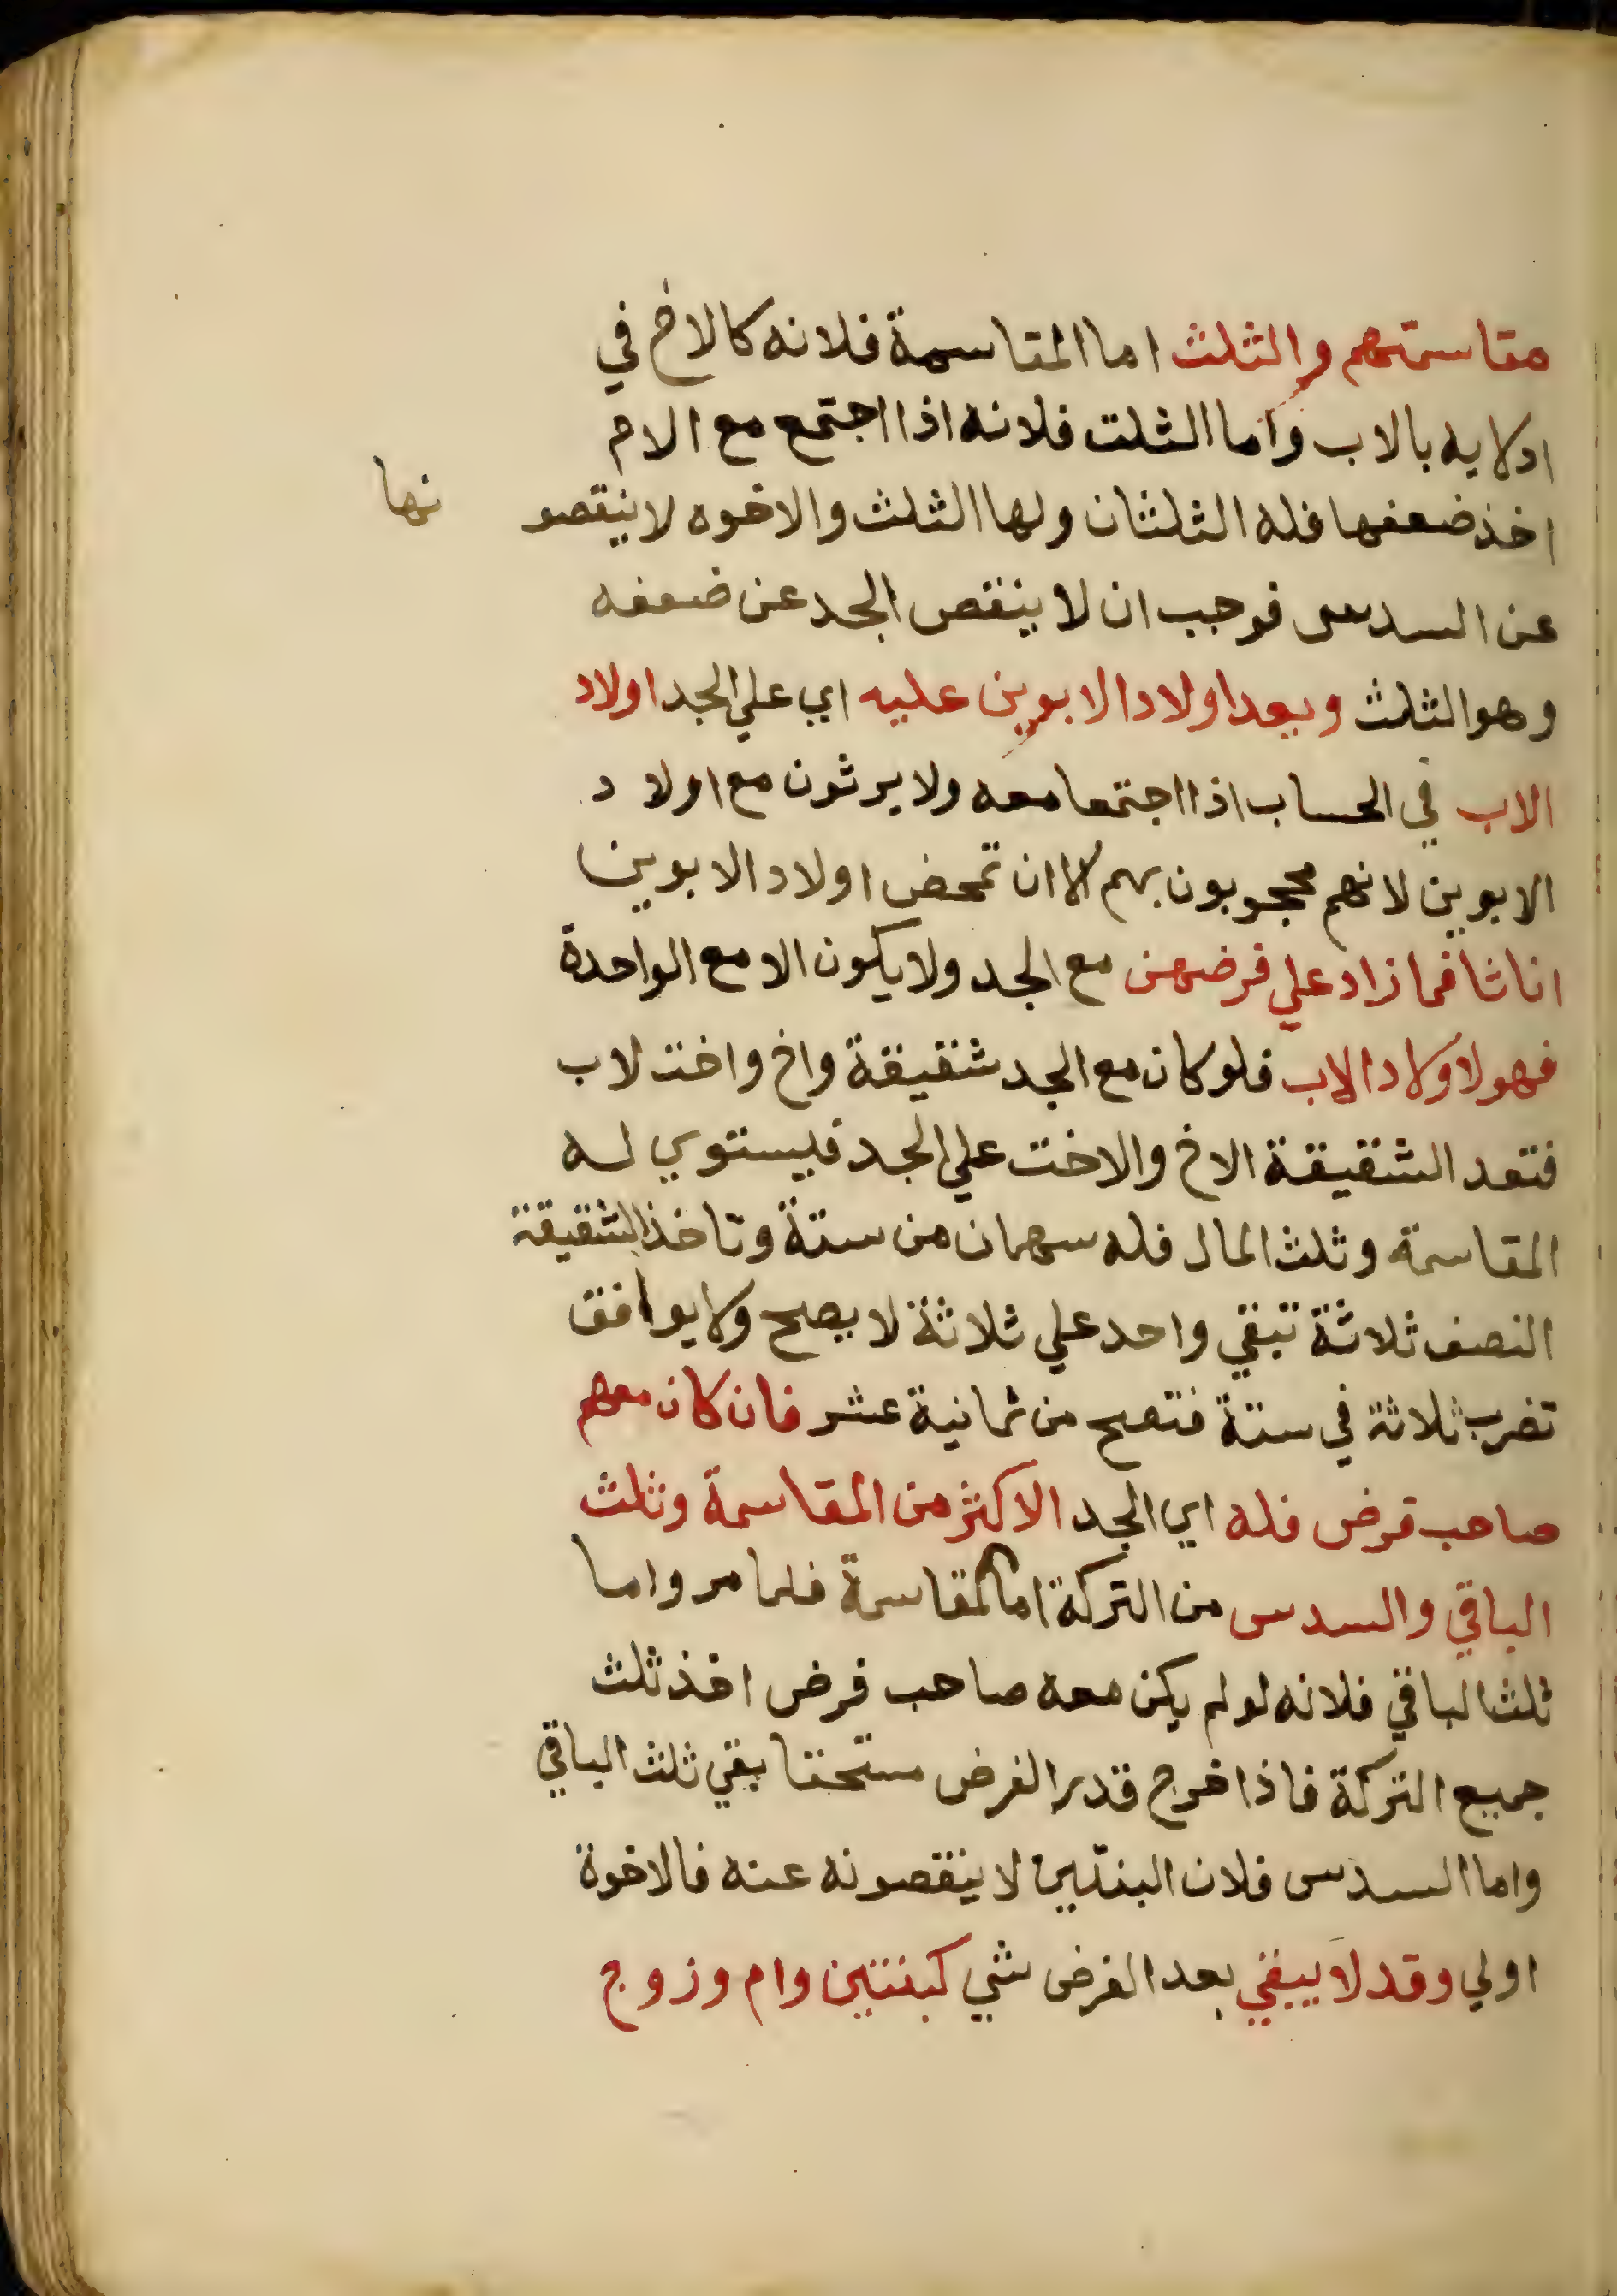 مقاسمتهم والثلث اما المقاسمة فلانه كالاخ في
ادلايه بالاب واما الثلث فلانه اذا اجتمع مع الام
اخذ ضعفها فله الثلثان ولها الثلث والاخوه لا ينقصو نها
عن السدس فوجب ان لا ينقص الجد عن ضعفه
وهو الثلث ويعد اولاد الابوين عليه اي علي الجد اولاد
الاب في الحساب اذا اجتمعا معه ولا يرثون مع اولاد
الابوين لانهم محجوبون بهم الا ان تمحض اولاد الابوين
اناثا فما زاد علي فرضهن مع الجد ولا يكون الا مع الواحدة
فهو لاولاد الاب فلو كان مع الجد شقيقة واخ واخت لاب
فتعد الشقيقة الاخ والاخت علي الجد فيستوي له
المقاسمة وثلث المال فله سهمان من ستة وتاخذ الشقيقة
النصف ثلاثة تبقي واحد علي ثلاثة لا يصح ولا يوافق
تضرب ثلاثة في ستة فتصح من ثمانية عشر فان كان معهم
صاحب فرض فله اي الجد الاكثر من المقاسمة وثلث
الباقي والسدس من التركة اما المقاسمة فلما مر واما
ثلث الباقي فلانه لو لم يكن معه صاحب فرض اخذ ثلث
جميع التركة فاذا خرج قدر الفرض مستحقا بقي ثلث الباقي
واما السدس فلان البنتين لا ينقصونه عنه فالاخوة
اولي وقد لا يبقي بعد الفرض شي كبنتين وام وزوج